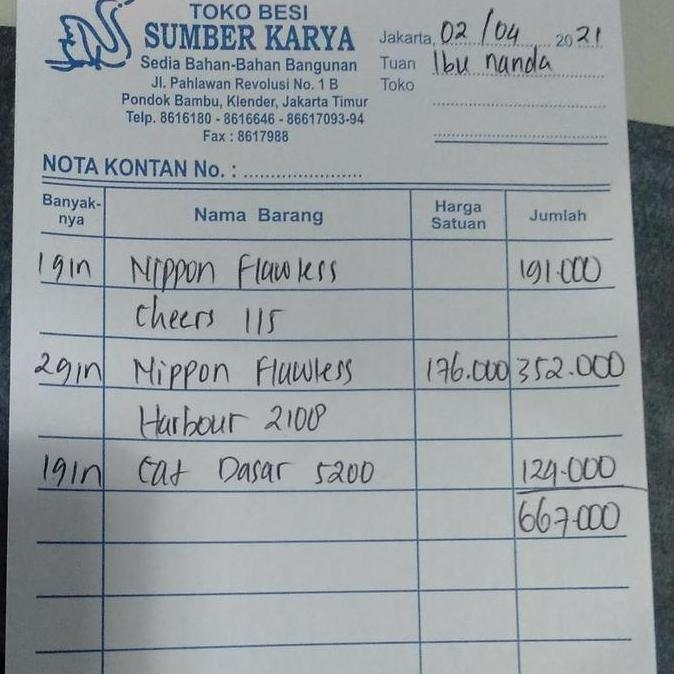 TOKO BESI
SUMBER KARYA
Sedia Bahan-Bahan Bangunan
Jl. Pahlawan Revolusi No. 1 B
Pondok Bambu, Klender, Jakarta Timur
Telp. 8616180 - 8616646 - 86617093-94
Fax : 8617988
Jakarta, 02/04 2021
Tuan Ibu nanda
Toko
NOTA KONTAN No. :
Banyak-nya Nama Barang Harga Satuan Jumlah
1 gln Nippon Flawless 191.000
Cheers 115
2 gln Nippon Flawless 176.000 352.000
Harbour 2108
1 gln Cat Dasar 5200 124.000
667.000